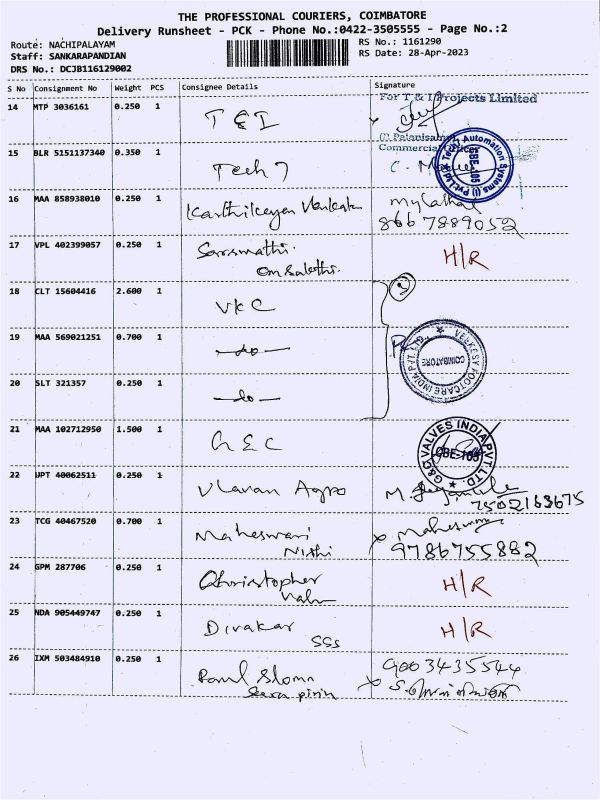 THE PROFESSIONAL COURIERS, COIMBATORE
Delivery Runsheet - PCK - Phone No.:0422-3505555 - Page No.:2
Route: NACHIPALAYAM
RS No.: 1161290
Staff: SANKARAPANDIAN
RS Date: 28-Apr-2023
DRS No.: DCJB116129002
S No Consignment No Weight PCS Consignee Details Signature
14 MTP 3036161 0.250 1 T & I
For T & I Projects Limited
Commercial
15 BLR 5151137340 0.350 1 Tech 7
Automation Systems (I) Pvt. Ltd
16 MAA 858938010 0.250 1 Karthikeyan Venkat
8667889052
17 VPL 402399057 0.250 1 H/R
18 CLT 15604416 2.600 1 VKC
19 MAA 569021251 0.700 1 -do-
VEEKESY FOOTCARE INDIA PVT. LTD.
COIMBATORE
20 SLT 321357 0.250 1 -do-
21 MAA 102712950 1.500 1 GEC
VALVES INDIA PVT. LTD.
22 UPT 40062511 0.250 1 Vlavan Agro
7502163675
23 TCG 40467520 0.700 1 Maheswari
Nithi
9786755882
24 GPM 287706 0.250 1 Christopher H/R
25 NDA 905449747 0.250 1 Divakar H/R
SSS
26 IXM 503484910 0.250 1
9003435544